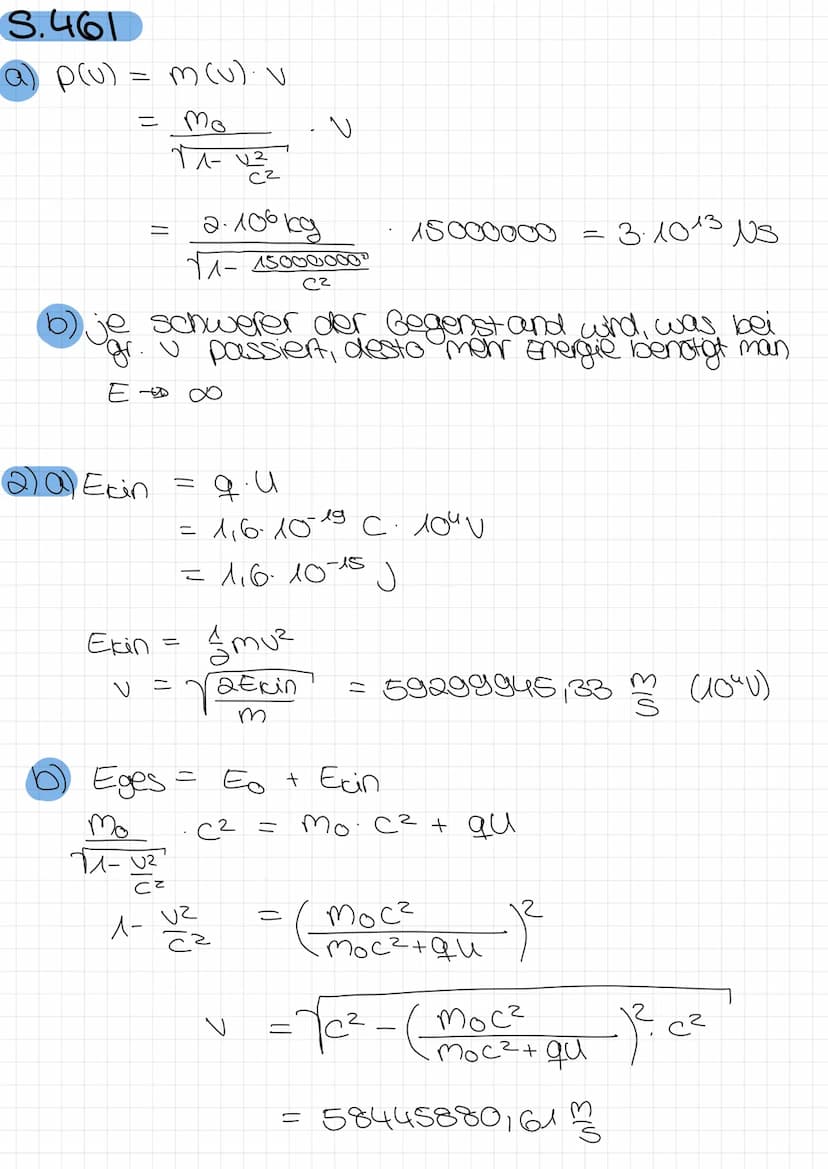 S.461
a) p(v) = m(v) · v
= m₀ / √(1 - v²/c²) · v
= 2·10⁶ kg / √(1 - 15000000²/c²) · 15000000 = 3·10¹³ Ns
b) je schwerer der Gegenstand wird, was bei
gr. v passiert, desto mehr Energie benötigt man
E → ∞
2) a) Ekin = q·U
= 1,6·10⁻¹⁹ C · 10⁴ V
= 1,6·10⁻¹⁵ J
Ekin = ½mv²
v = √(2Ekin / m) = 59299945,33 m/s (10⁴V)
b) Eges = E₀ + Ekin
m₀ / √(1 - v²/c²) · c² = m₀·c² + qU
1 - v²/c² = (m₀c² / (m₀c² + qU))²
v = √(c² - (m₀c² / (m₀c² + qU))² · c²)
= 58445880,61 m/s